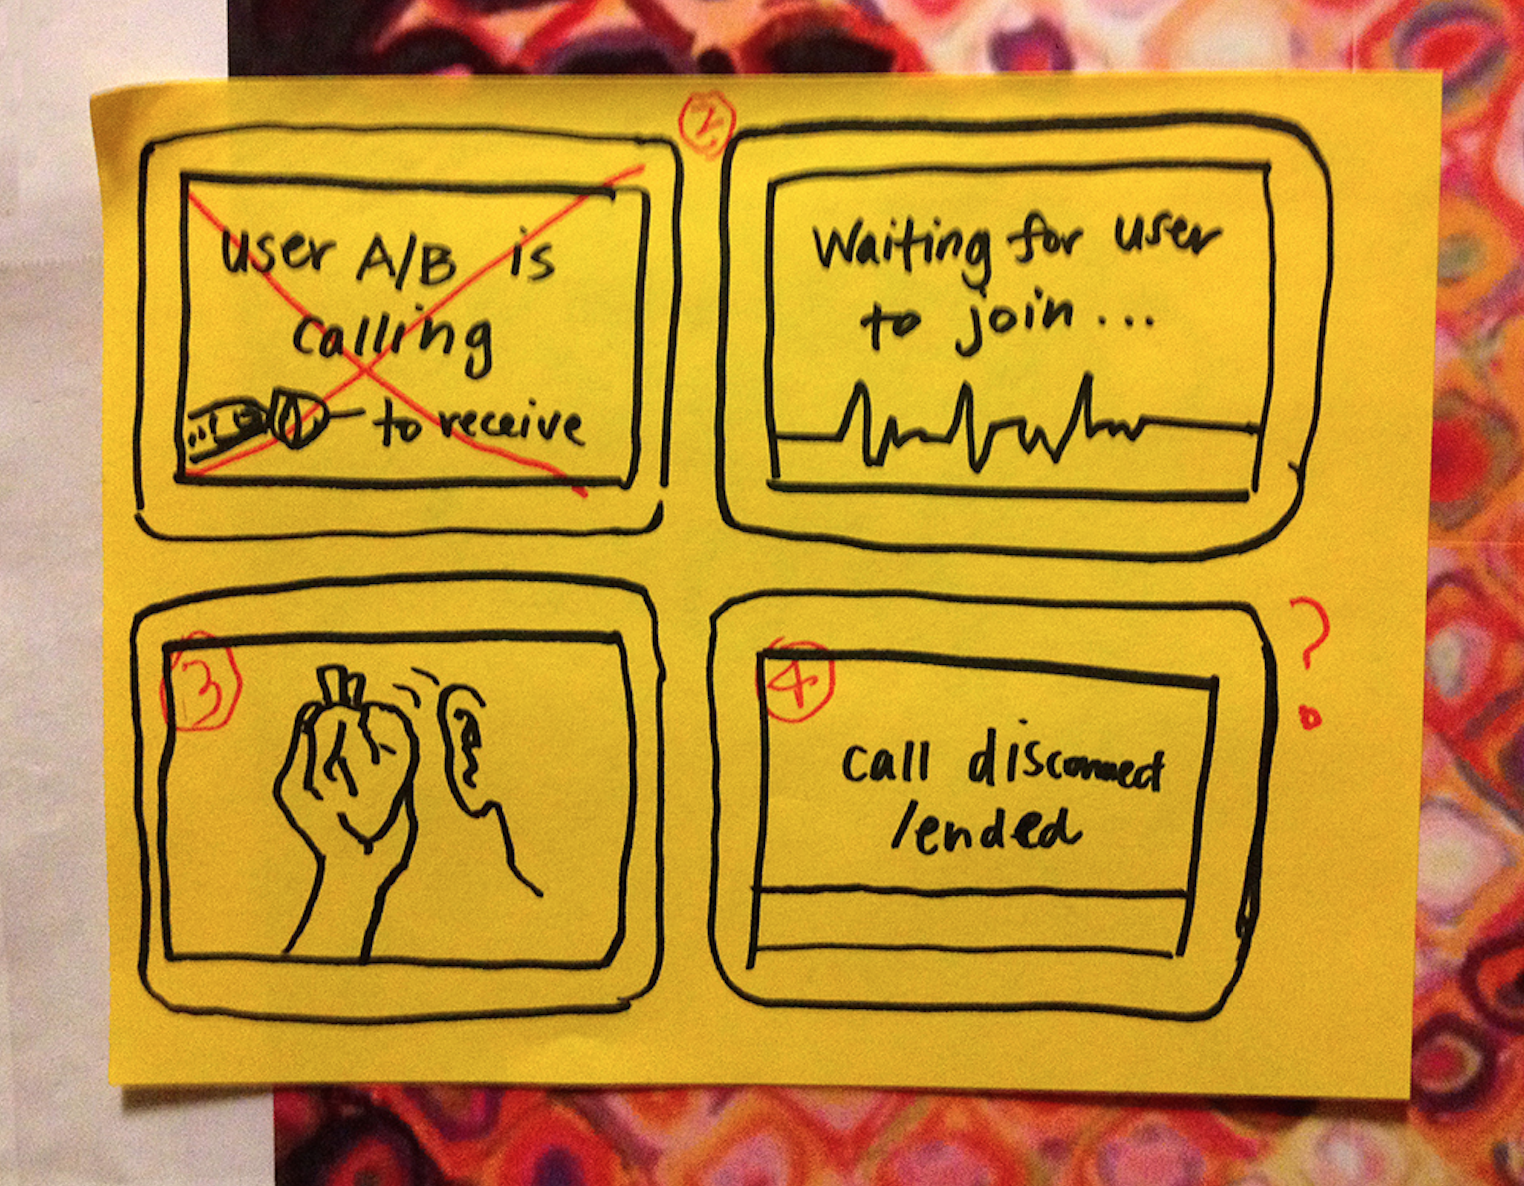 user A/B is
calling
to receive
2
Waiting for user
to join...
3
4
call disconnect
/ended
?